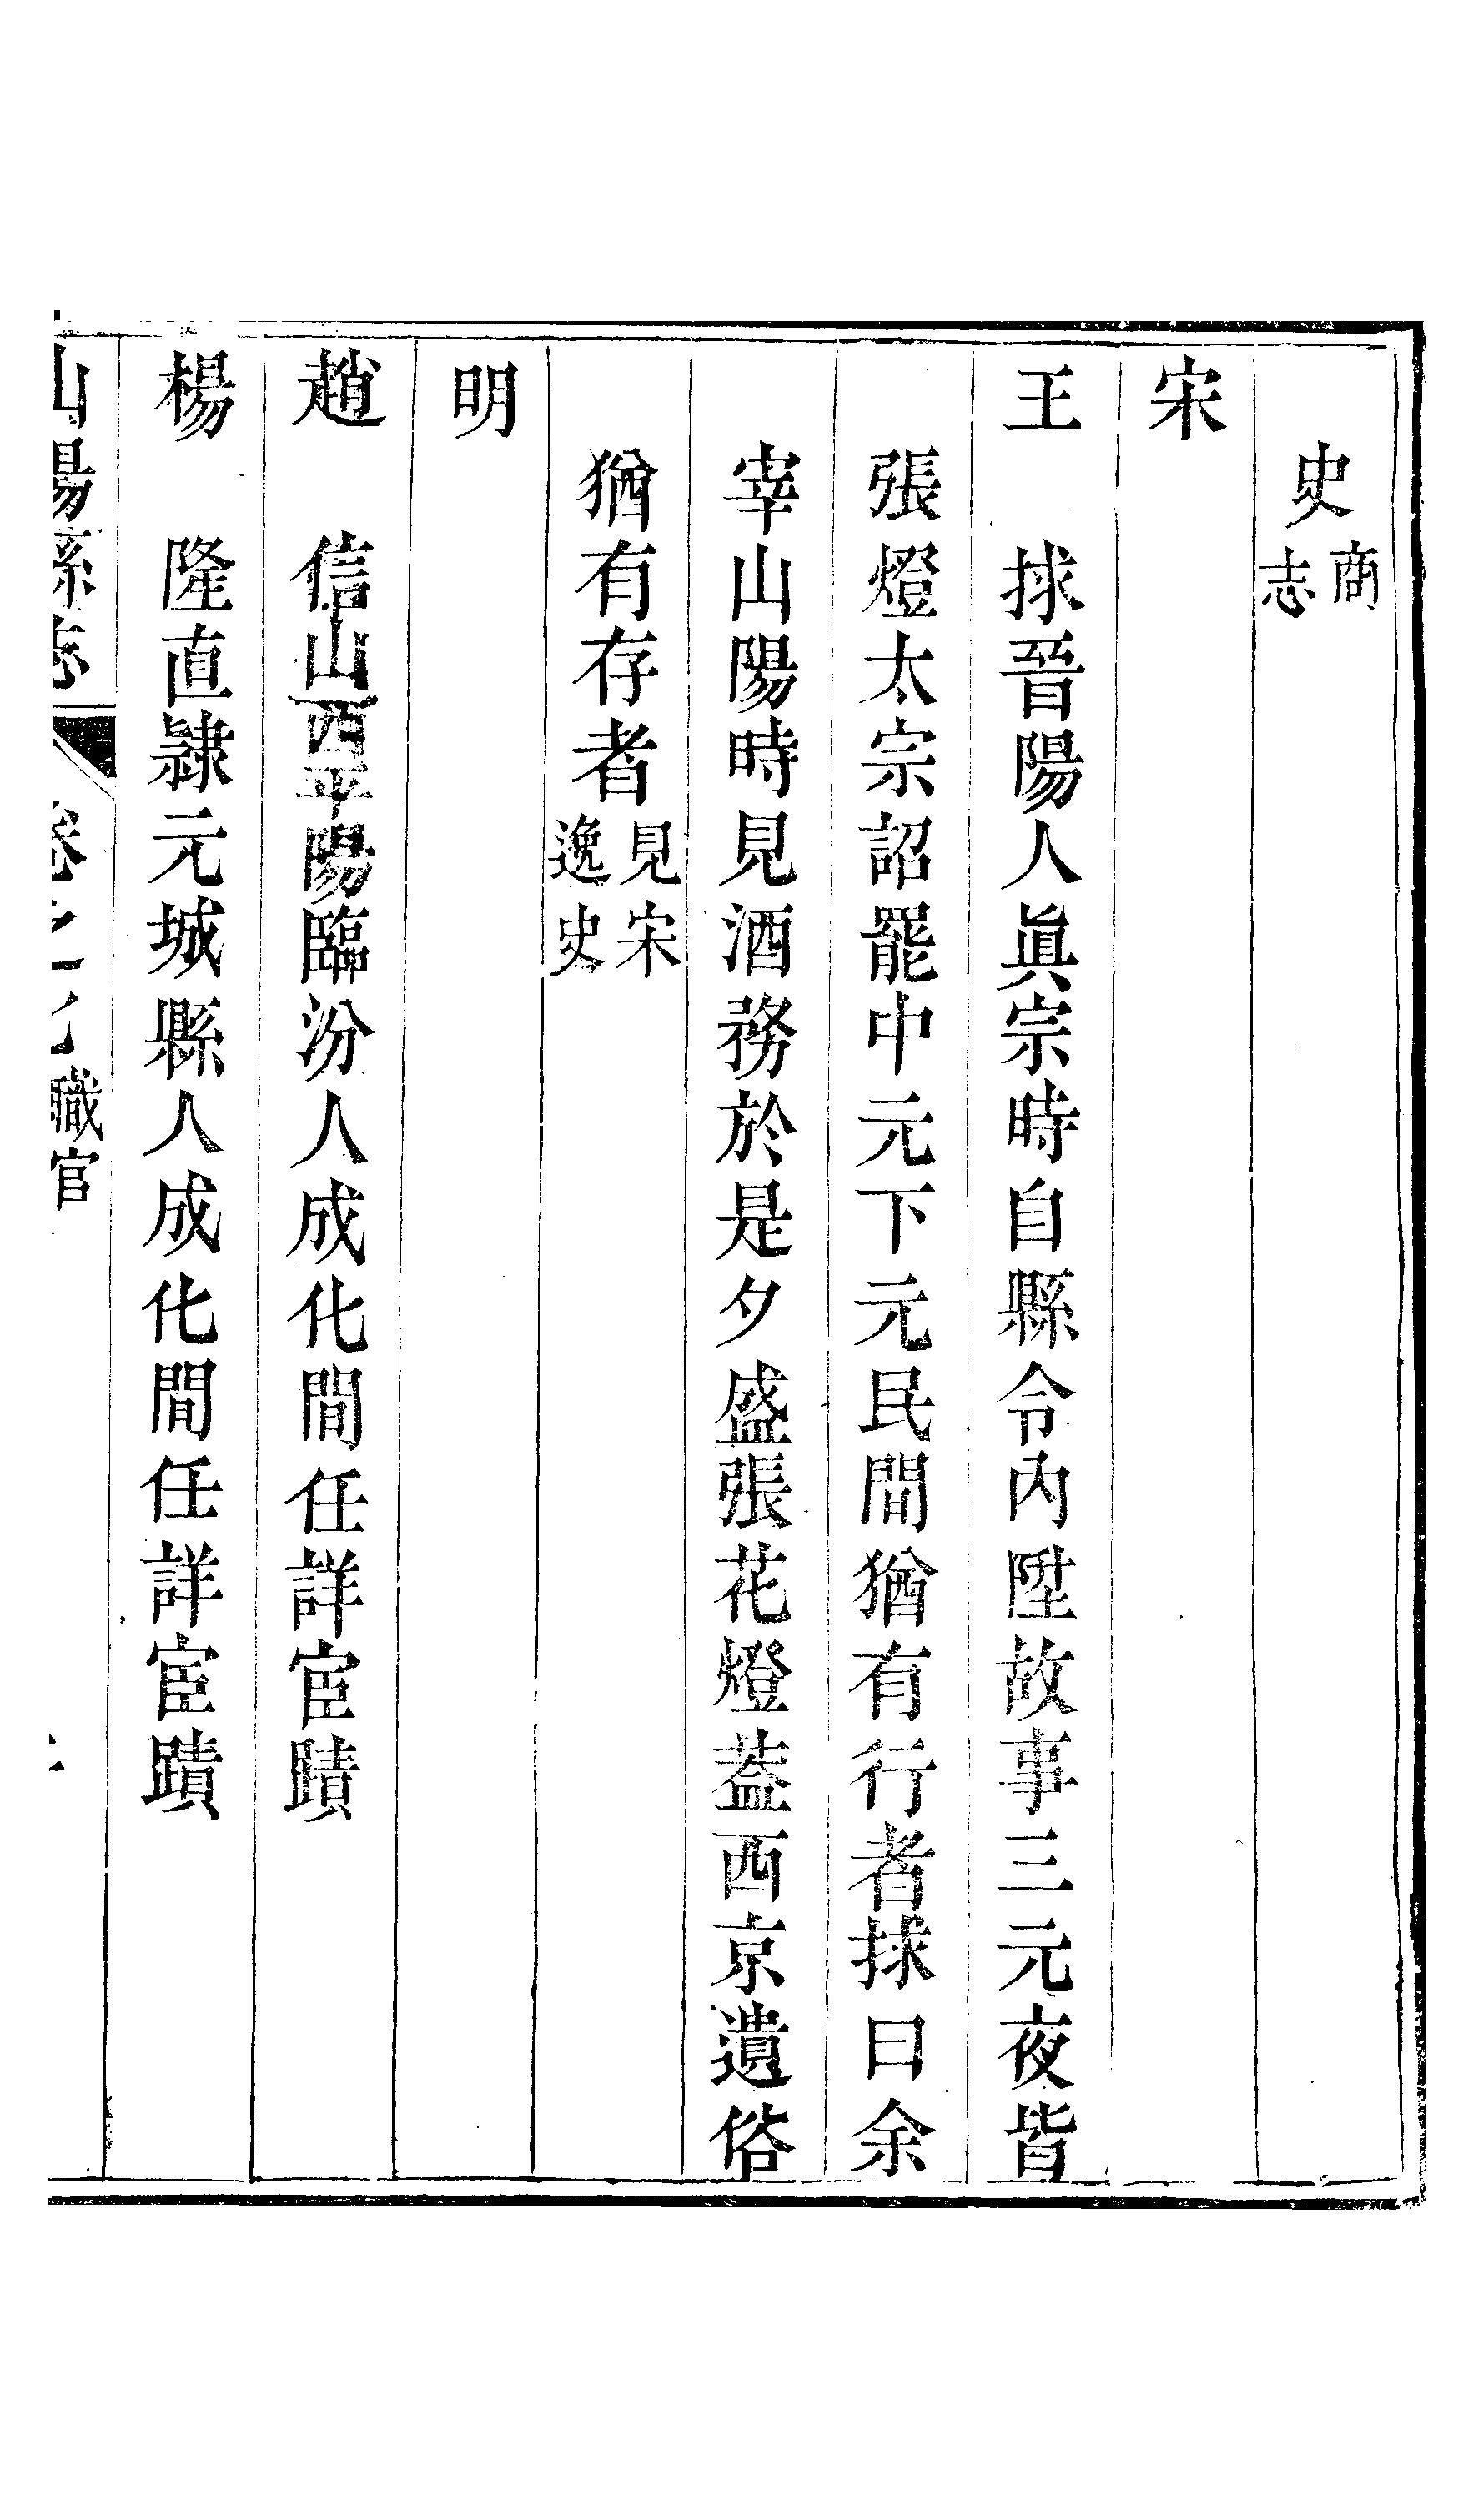 史商志
宋
王　捄晉陽人眞宗時自縣令內陞故事三元夜皆
張燈太宗詔罷中元下元民間猶有行者捄曰余
宰山陽時見酒務於是夕盛張花燈葢西京遺俗
猶有存者見宋逸史
明
趙　信山西平陽臨汾人成化間任詳宦蹟
楊　隆直隸元城縣人成化間任詳宦蹟
山陽縣志 卷之 職官